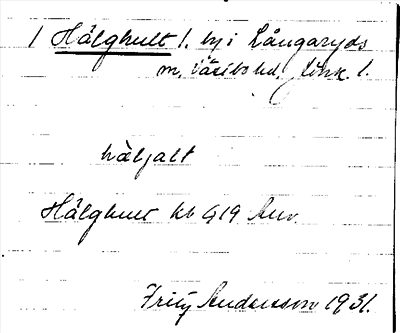 1 Hälghult 1. by i Långaryds
m, Västbo hd, Jönk. l.
häljalt
Hälghult kb 919 Anv.
Fritz Andersson 1931.